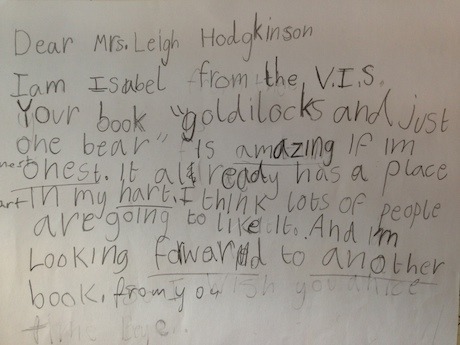 Dear Mrs. Leigh Hodgkinson
I am Isabel from the V.I.S.
Your book "goldilocks and just
one bear" is amazing If im
onest. It allready has a place
In my hart. I think lots of people
are going to like It. And I'm
Looking forward to another
book. from you